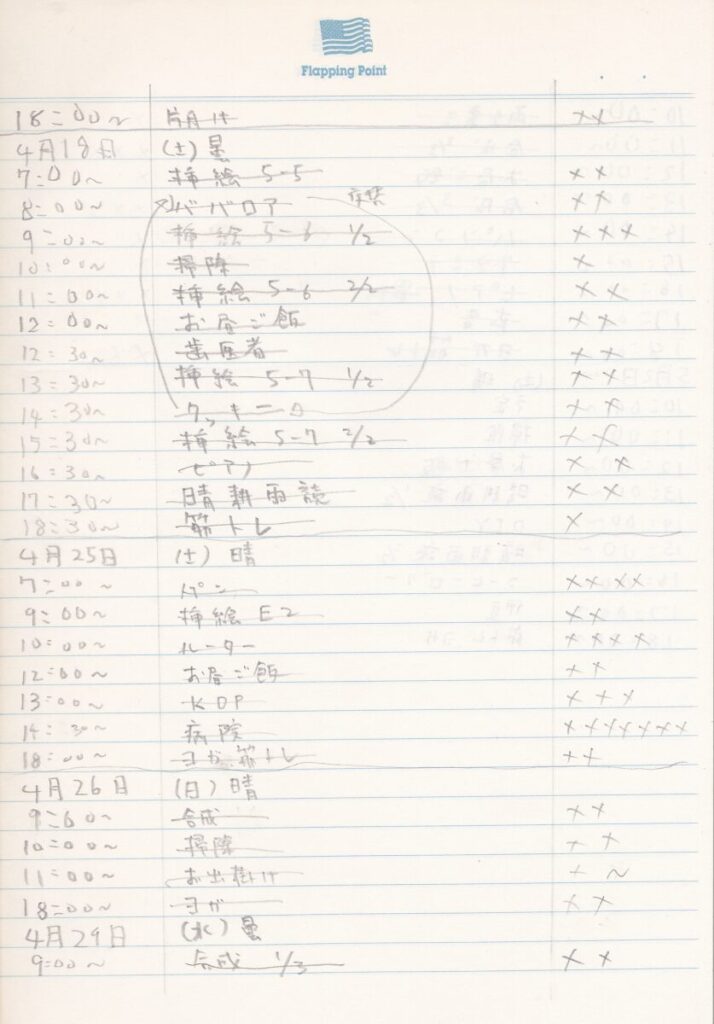 Flapping Point
18:00~ 片月け ××
4月18日 (土) 曇
7:00~ 挿絵 5-5 ××
8:00~ ババロア ××
9:00~ 挿絵 5-6 1/2 ×××
10:00~ 掃除 ×
11:00~ 挿絵 5-6 2/2 ××
12:00~ お昼ご飯 ××
12:30~ 歯医者 ××
13:30~ 挿絵 5-7 1/2 ××
14:30~ ××
15:30~ 挿絵 5-7 2/2 ××
16:30~ ピアノ × ×
17:30~ 晴耕雨読 ××
18:30~ 筋トレ ×
4月25日 (土) 晴
7:00~ パン ××××
9:00~ 挿絵 E2 ××
10:00~ ルーター ××××
12:00~ お昼ご飯 ××
13:00~ KDP ×××
14:30~ 病院 ×××××××
18:00~ ヨガ 筋トレ ××
4月26日 (日) 晴
9:00~ 合成 ××
10:00~ 掃除 ××
11:00~ お出掛け × ~
18:00~ ヨガ ××
4月29日 (水) 曇
9:00~ 合成 1/3 ××